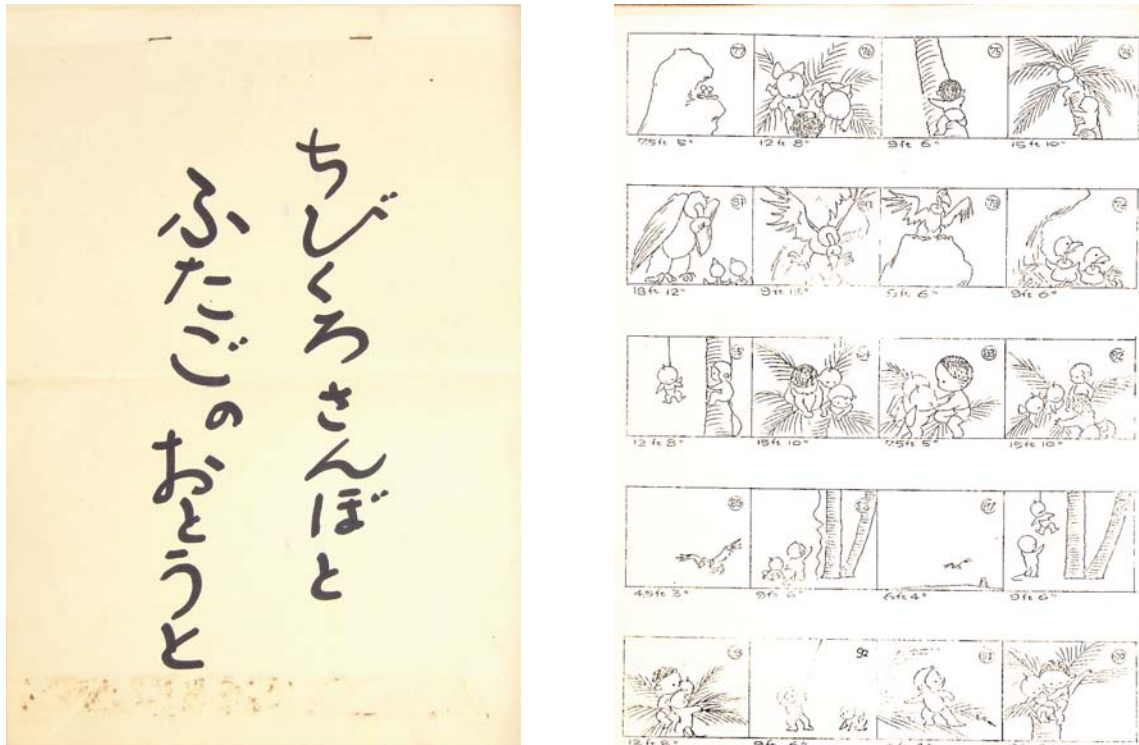 ちびくろさんぼと
ふたごのおとうと
77 76 75 74
7.5ft 5" 12ft 8" 9ft 6" 15ft 10"
81 79
18ft 12" 9ft 6"
84 83 82
12ft 8" 15ft 10" 7.5ft 5" 15ft 10"
87
4.5ft 3" 9ft 6" 6ft 4" 9ft 6"
92
12ft 8" 9ft 6"